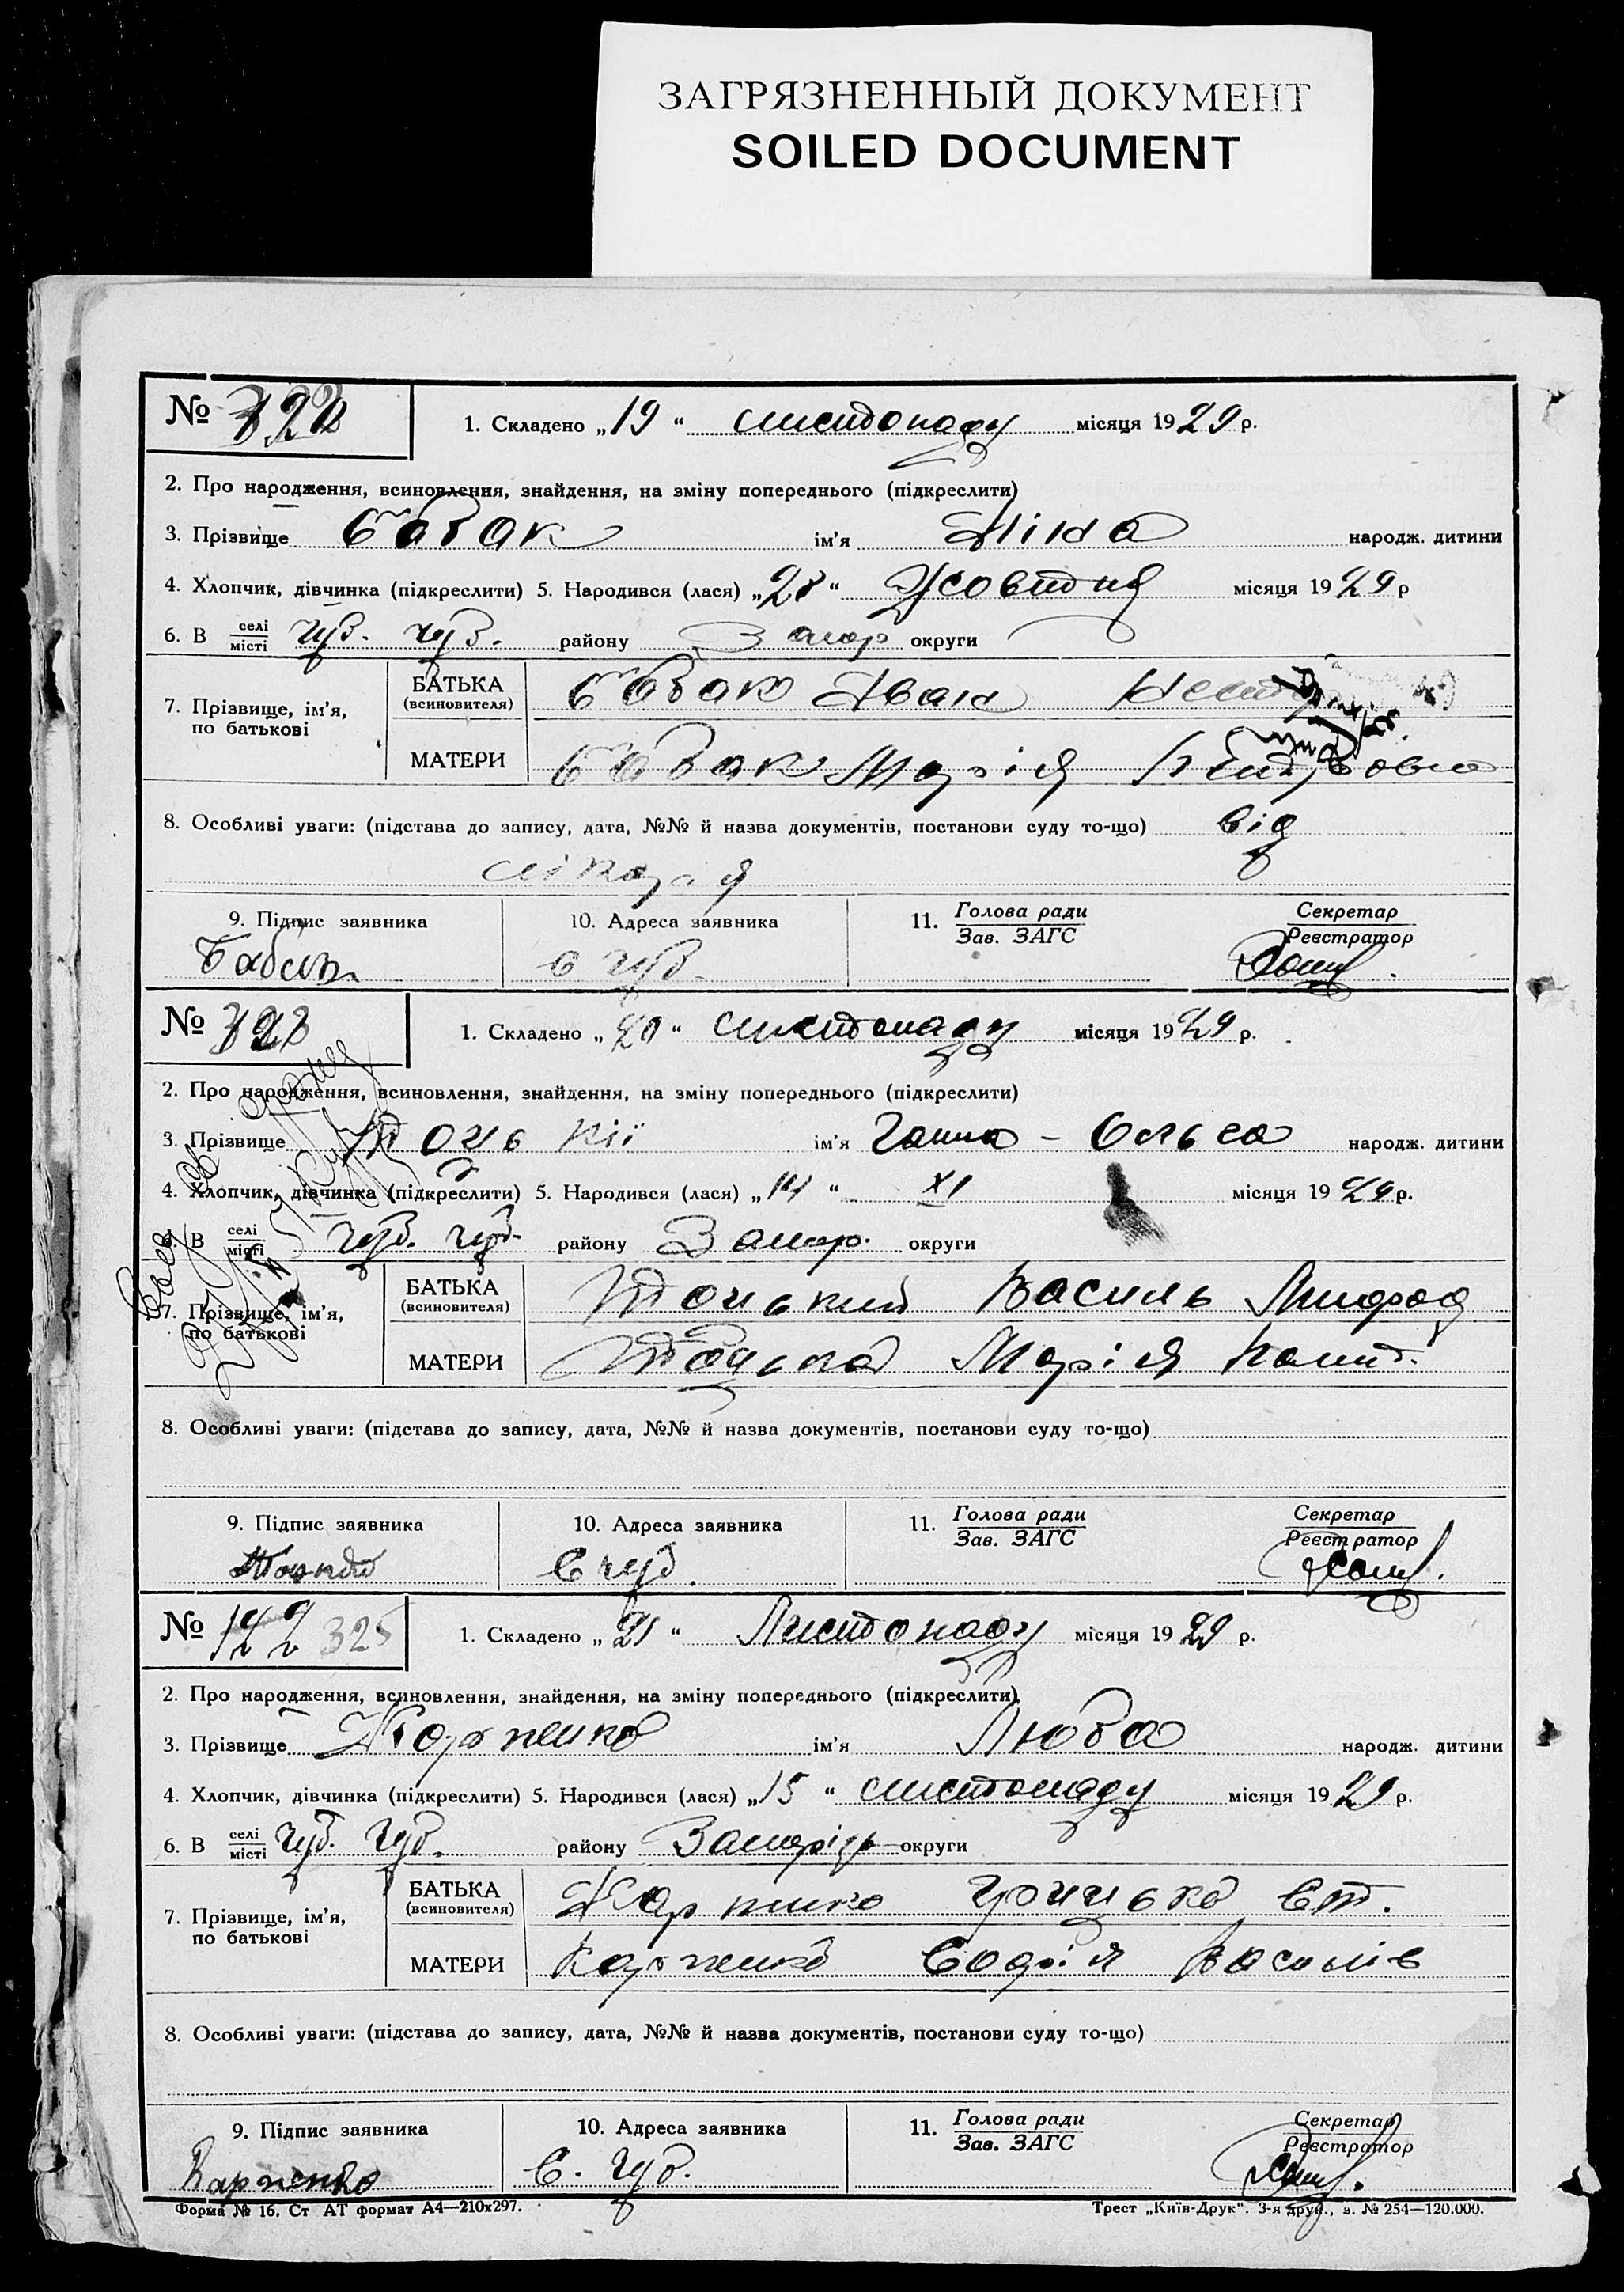 ЗАГРЯЗНЕННЫЙ ДОКУМЕНТ
SOILED DOCUMENT
№
1. Складено „19“ листопаду місяця 1929 р.
2. Про народження, всиновлення, знайдення, на зміну попереднього (підкреслити)
3. Прізвище Бабак ім'я Ніна народж. дитини
4. Хлопчик, дівчинка (підкреслити) 5. Народився (лася) „28“ Жовтня місяця 1929 р
6. В селі місті Чуб. Чуб. району Запор округи
7. Прізвище, ім'я, по батькові
БАТЬКА (всиновителя) Бабак Іван
МАТЕРИ Бабак Марія
8. Особливі уваги: (підстава до запису, дата, №№ й назва документів, постанови суду то-що) від
лікаря
9. Підпис заявника 10. Адреса заявника 11. Голова ради Зав. ЗАГС Секретар Реєстратор
Бабак с Чуб.
№
1. Складено „20“ листопаду місяця 1929 р.
2. Про народження, всиновлення, знайдення, на зміну попереднього (підкреслити)
3. Прізвище ім'я Ганна - Олеса народж. дитини
4. Хлопчик, дівчинка (підкреслити) 5. Народився (лася) „14“ XI місяця 1929 р.
6. В селі місті Чуб. Чуб. району Запор. округи
7. Прізвище, ім'я, по батькові
БАТЬКА (всиновителя) Василь
МАТЕРИ Марія
8. Особливі уваги: (підстава до запису, дата, №№ й назва документів, постанови суду то-що)
9. Підпис заявника 10. Адреса заявника 11. Голова ради Зав. ЗАГС Секретар Реєстратор
С Чуб.
№ 122 325
1. Складено „21“ Листопаду місяця 1929 р.
2. Про народження, всиновлення, знайдення, на зміну попереднього (підкреслити)
3. Прізвище Корженко ім'я Люба народж. дитини
4. Хлопчик, дівчинка (підкреслити) 5. Народився (лася) „15“ листопаду місяця 1929 р.
6. В селі місті Чуб. Чуб. району округи
7. Прізвище, ім'я, по батькові
БАТЬКА (всиновителя) Грицько
МАТЕРИ Корженко Софія Василів
8. Особливі уваги: (підстава до запису, дата, №№ й назва документів, постанови суду то-що)
9. Підпис заявника 10. Адреса заявника 11. Голова ради Зав. ЗАГС Секретар Реєстратор
Карженко С. Чуб.
Форма № 16. Ст АТ формат А4—210x297.
Трест „Київ-Друк“. 3-я друк., з. № 254—120.000.